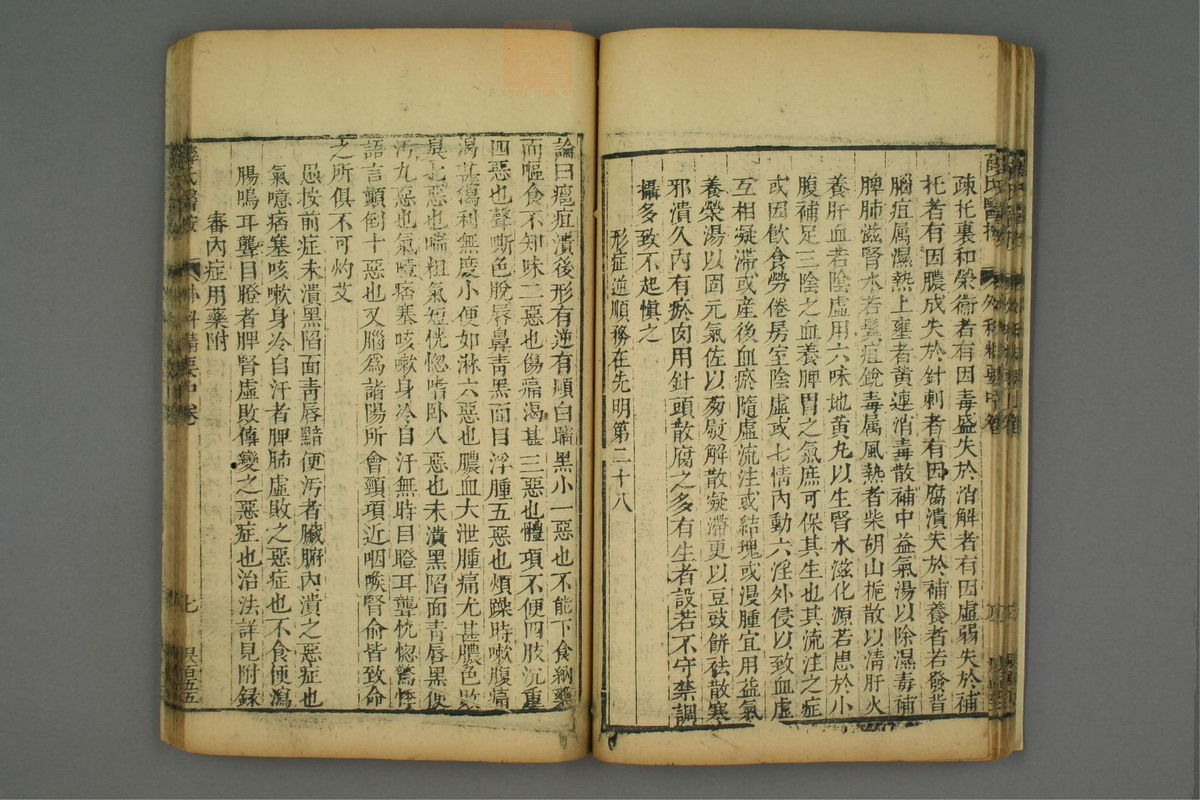 疎托裏和榮衛者有因毒盛失於消解者有因虛弱失於補
托者有因膿成失於針刺者有因腐潰失於補養者若發背
腦疽属濕熱上壅者黄連消毒散補中益氣湯以除濕毒補
脾肺滋腎水若鬂疽銳毒属風熱者柴胡山梔散以清肝火
養肝血若陰虛用六味地黄丸以生腎水滋化源若患於小
腹補足三陰之血養脾胃之氣庶可保其生也其流注之症
或因飲食勞倦房室陰虛或七情內動六淫外侵以致血虛
互相凝滯或産後血瘀隨虛流注或結塊或漫腫宜用益氣
養榮湯以固元氣佐以葱熨解散凝滯更以豆豉餅祛散寒
邪潰久內有瘀肉用針頭散腐之多有生者設若不守禁調
攝多致不起慎之
形症逆順務在先明第二十八
論曰瘡疽潰後形有逆有順白睛黑小一惡也不能下食納藥
而嘔食不知味二惡也傷痛渴甚三惡也體項不便四肢沉重
四惡也聲嘶色脫唇鼻靑黑面目浮腫五惡也煩躁時嗽腹痛
渴甚瀉利無度小便如淋六惡也膿血大泄腫痛尤甚膿色敗
臭七惡也喘粗氣短恍惚嗜卧八惡也未潰黑陷面靑唇黑便
汚九惡也氣噫痞塞咳嗽身冷自汗無時目瞪耳聾恍惚驚悸
語言顚倒十惡也又腦爲諸陽所會頸項近咽喉腎俞皆致命
之所俱不可灼艾
愚按前症未潰黑陷面靑唇黯便汚者臟腑內潰之惡症也
氣噫痞塞咳嗽身冷自汗者脾肺虛敗之惡症也不食便瀉
腸鳴耳聾目瞪者脾腎虛敗傳變之惡症也治法詳見附錄
審內症用藥附
薛氏醫按
外科精要中卷
七